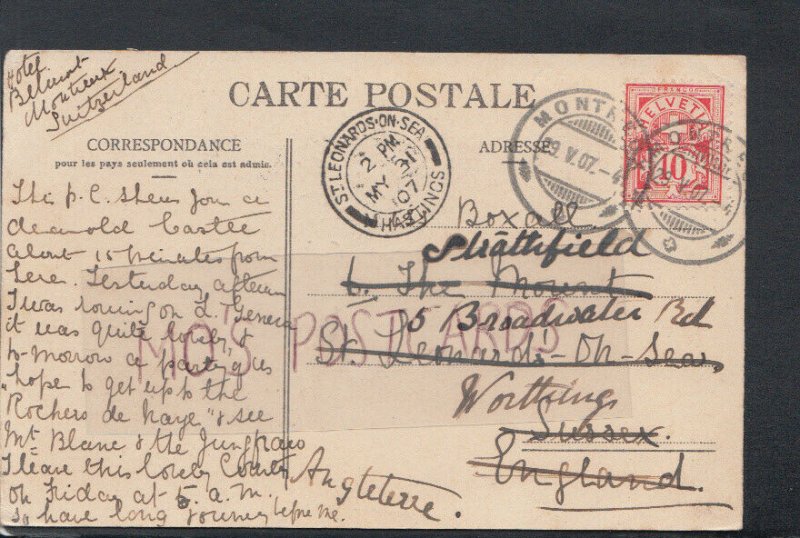 Hotel
Belmont
Montreux
Switzerland
CARTE POSTALE
CORRESPONDANCE
pour les pays seulement où cela est admis.
ADRESSE
ST LEONARDS-ON-SEA
2 PM
MY 31
07
HASTINGS
MONTREUX
29 V.07.
FRANCO
HELVETIA
10
The p.c. shews you a
dear old Castle
about 15 minutes from
here. Yesterday aftern
I was rowing on L. Geneva
it was quite lovely &
to-morrow a party of us
hope to get up to the
"Rochers de Naye" & see
Mt Blanc & the Jungfrau
I leave this lovely Country
on Friday at 5 a.m.
so have long journey before me.
Boxall
Strathfield
6. The Mount
5 Broadwater Rd
St Leonards-On-Sea
Worthing
Sussex.
England.
Angleterre.
MO'S POSTCARDS